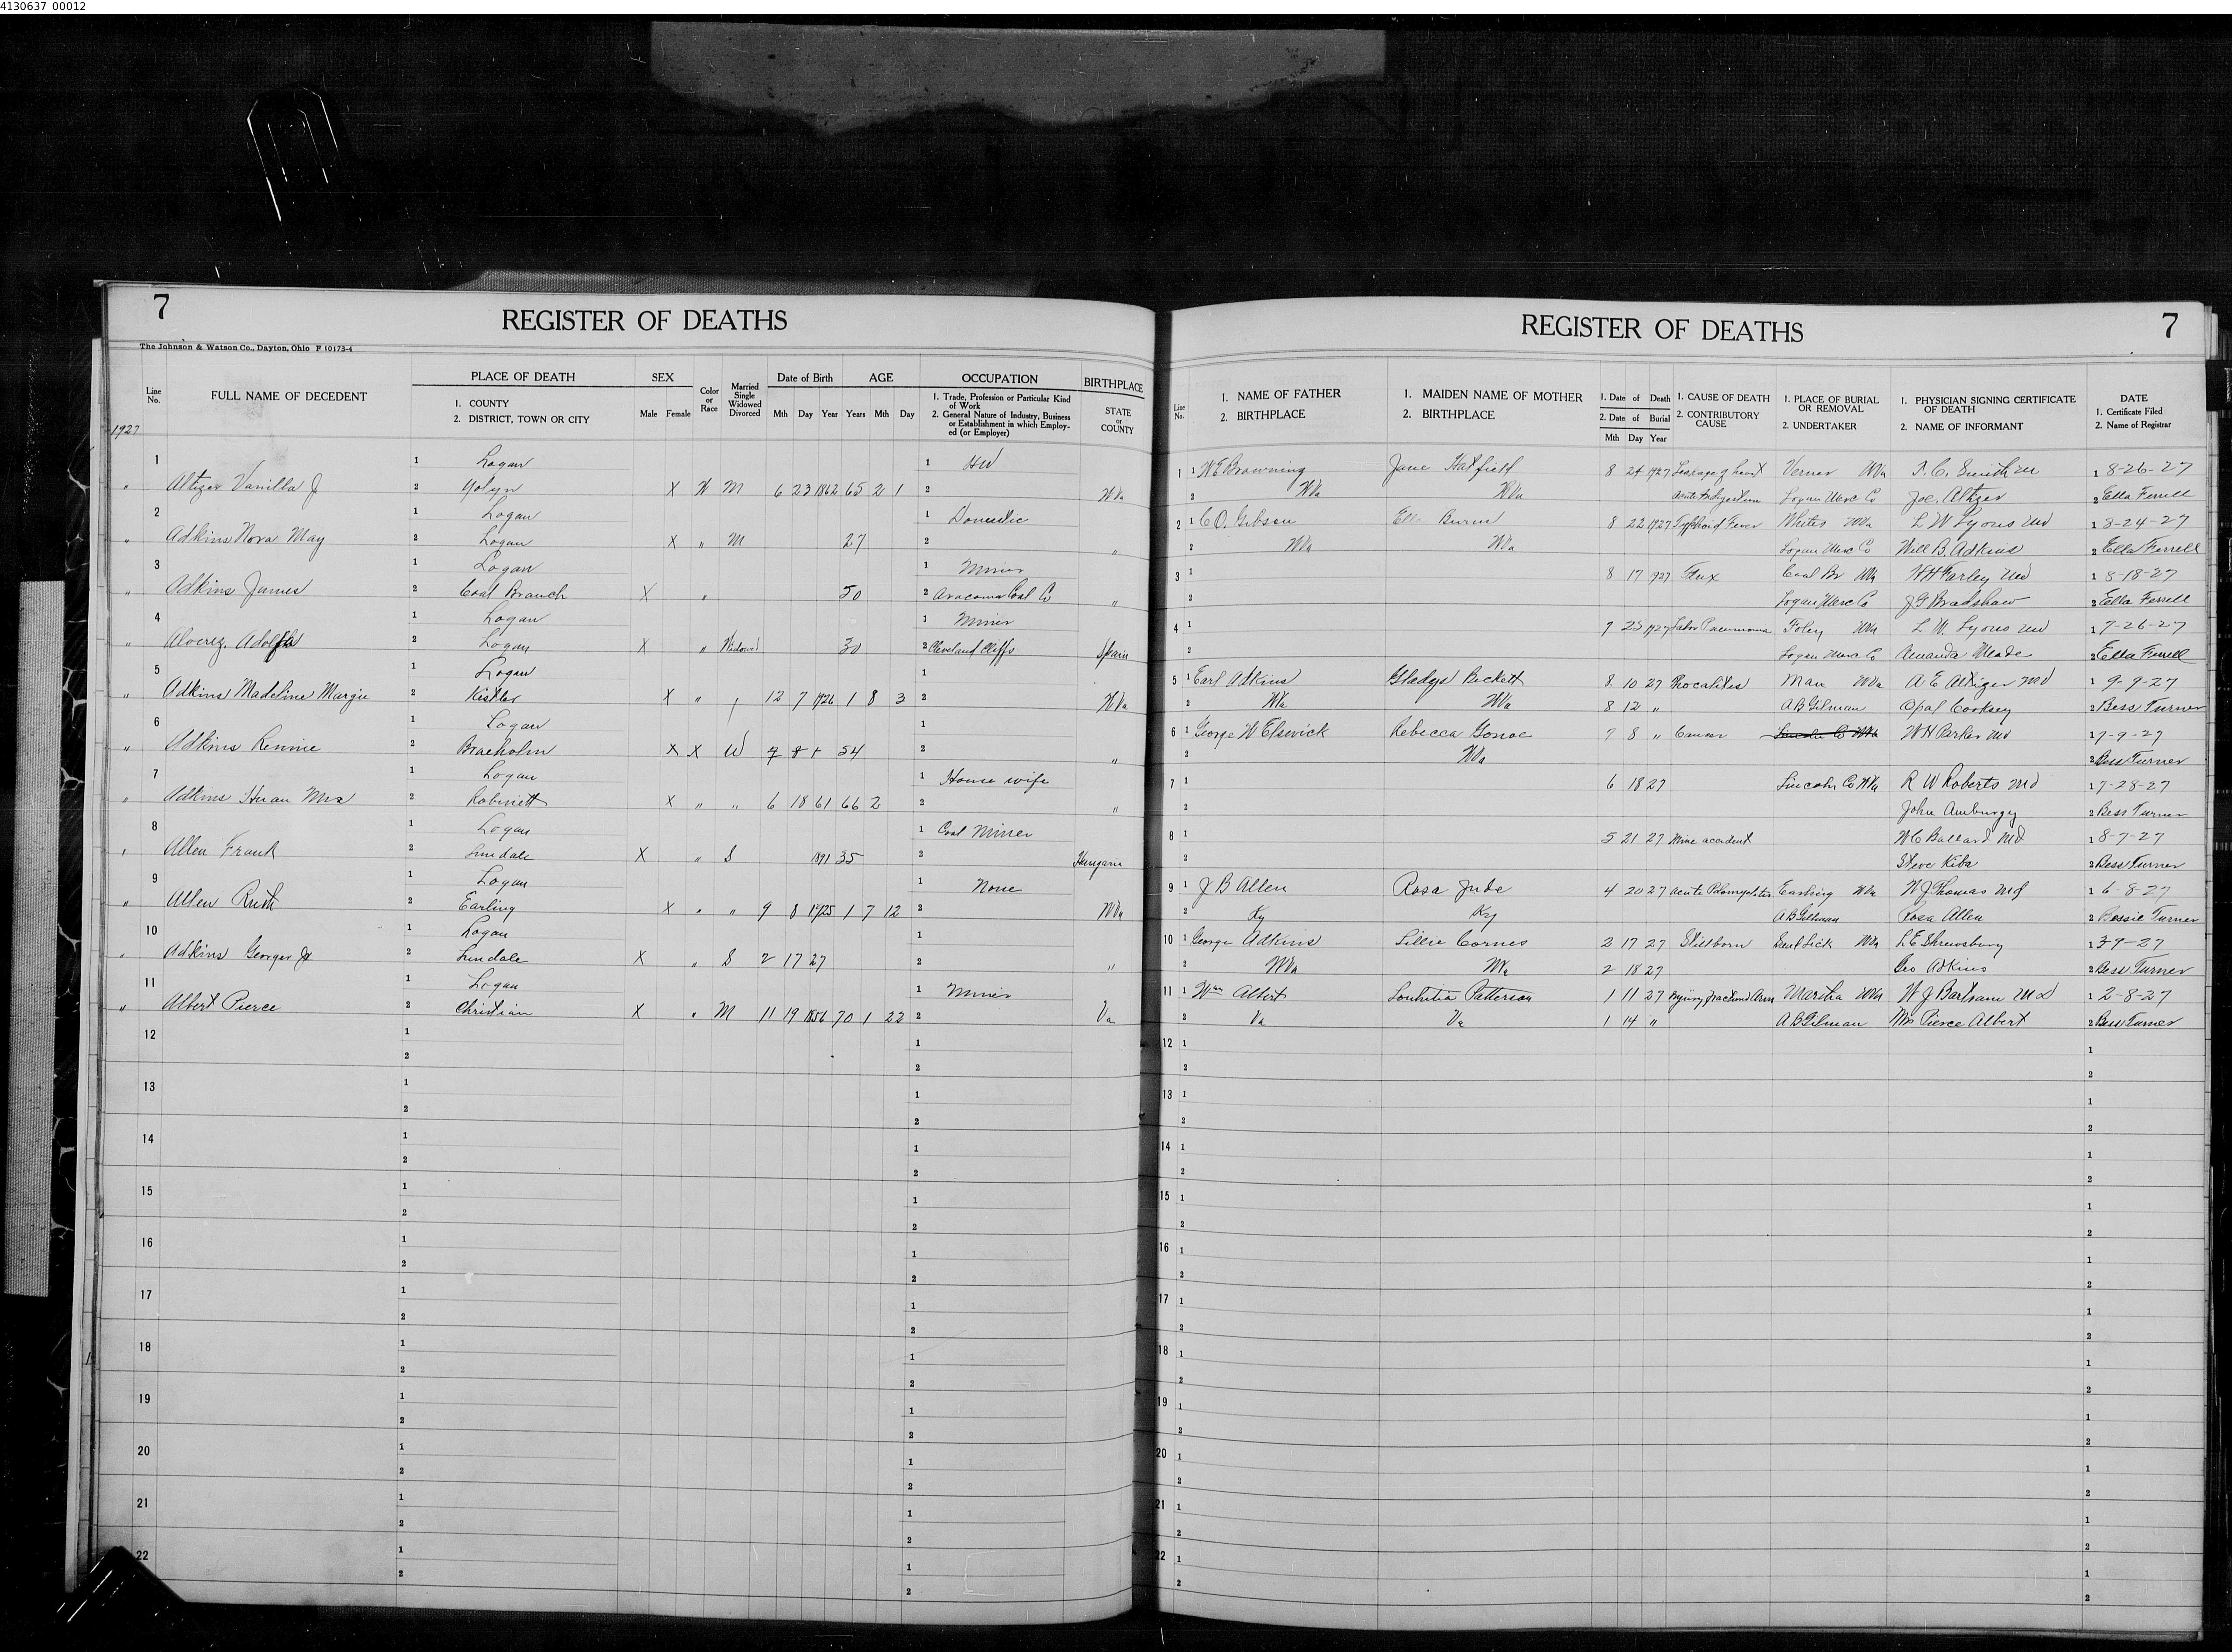 4130637_00012
7
REGISTER OF DEATHS
The Johnson & Watson Co., Dayton, Ohio F 10173-4
Line No.
FULL NAME OF DECEDENT
PLACE OF DEATH
1. COUNTY
2. DISTRICT, TOWN OR CITY
SEX
Male Female
Color or Race
Married Single Widowed Divorced
Date of Birth
Mth Day Year
AGE
Years Mth Day
OCCUPATION
1. Trade, Profession or Particular Kind of Work
2. General Nature of Industry, Business or Establishment in which Employed (or Employer)
BIRTHPLACE
STATE or COUNTY
1927
1 1 Logan 1 HW
" Altizer Vanilla J 2 Yolyn X W M 6 23 1862 65 2 1 2 WVa
2 1 Logan 1 Domestic
" Adkins Nora May 2 Logan X " M 27 2 "
3 1 Logan 1 Miner
" Adkins James 2 Coal Branch X " 50 2 Aracoma Coal Co "
4 1 Logan 1 Miner
" Alverez, Adolph 2 Logan X " Widowed 30 2 Cleveland Cliffs Spain
5 1 Logan 1
" Adkins Madeline Margie 2 Kistler X " 12 7 1926 1 8 3 2 WVa
6 1 Logan 1
" Adkins Rennie 2 Braeholm X X W 54 2 "
7 1 Logan 1 House wife
" Adkins Mrs 2 Robinett X " " 6 18 61 66 2 2 "
8 1 Logan 1 Coal Miner
Allen Frank 2 Lundale X " S 1891 35 2 Hungaria
9 1 Logan 1 None
" Allen Ruth 2 Earling X " " 9 8 1925 1 7 12 2 WVa
10 1 Logan 1
" Adkins George Jr 2 Lundale X " S 2 17 27 2 "
11 1 Logan 1 Miner
" Albert Pierce 2 Christian X " M 11 19 1856 70 1 22 2 Va
12 1 1
2 2
13 1 1
2 2
14 1 1
2 2
15 1 1
2 2
16 1 1
2 2
17 1 1
2 2
18 1 1
2 2
19 1 1
2 2
20 1 1
2 2
21 1 1
2 2
22 1 1
2 2
REGISTER OF DEATHS
7
Line No.
1. NAME OF FATHER
2. BIRTHPLACE
1. MAIDEN NAME OF MOTHER
2. BIRTHPLACE
1. Date of Death
2. Date of Burial
Mth Day Year
1. CAUSE OF DEATH
2. CONTRIBUTORY CAUSE
1. PLACE OF BURIAL OR REMOVAL
2. UNDERTAKER
1. PHYSICIAN SIGNING CERTIFICATE OF DEATH
2. NAME OF INFORMANT
DATE
1. Certificate Filed
2. Name of Registrar
1 1 W E Browning Jane Hatfield 8 24 1927 Verner WVa Smith 1 8-26-27
2 WVa WVa Acute Indigestion Logan Merc Co Joe Altizer 2 Ella Ferrell
2 1 C O. Gibson Ella Burns 8 22 1927 Typhoid Fever Whites WVa L W Lyons Md 1 8-24-27
2 WVa WVa Logan Merc Co Will B. Adkins 2 Ella Ferrell
3 1 8 17 1927 Flux Coal Br WVa W H Farley Md 1 8-18-27
2 Logan Merc Co J G Bradshaw 2 Ella Ferrell
4 1 7 25 1927 Lobar Pneumonia Foley WVa L. W. Lyons Md 1 7-26-27
2 Logan Merc Co Amanda Meade 2 Ella Ferrell
5 1 Earl Adkins Gladys Beckett 8 10 27 Man WVa A E Altizer Md 1 9-9-27
2 WVa WVa 8 12 " A B Gilman Opal Cooksey 2 Bess Turner
6 1 George W Elswick Rebecca 7 8 " Cancer Lincoln Co WVa W H Parker Md 1 7-9-27
2 WVa 2 Bess Turner
7 1 6 18 27 Lincoln Co WVa R W Roberts Md 1 7-28-27
2 John Amburgy 2 Bess Turner
8 1 5 21 27 Mine accident W C Ballard Md 1 8-7-27
2 Steve Kiba 2 Bess Turner
9 1 J B Allen Rosa Jude 4 20 27 Earling WVa W J Thomas Md 1 6-8-27
2 Ky Ky A B Gillman Rosa Allen 2 Bessie Turner
10 1 George Adkins Lillie Cornes 2 17 27 Stillborn Lick WVa L E Shrewsbury 1 3-9-27
2 WVa WVa 2 18 27 Geo Adkins 2 Bess Turner
11 1 Wm Albert Patterson 1 11 27 Injury fractured Arm Martha WVa W J Bartram M D 1 2-8-27
2 Va Va 1 14 " A B Gilman Mrs Pierce Albert 2 Bess Turner
12 1 1
2 2
13 1 1
2 2
14 1 1
2 2
15 1 1
2 2
16 1 1
2 2
17 1 1
2 2
18 1 1
2 2
19 1 1
2 2
20 1 1
2 2
21 1 1
2 2
22 1 1
2 2